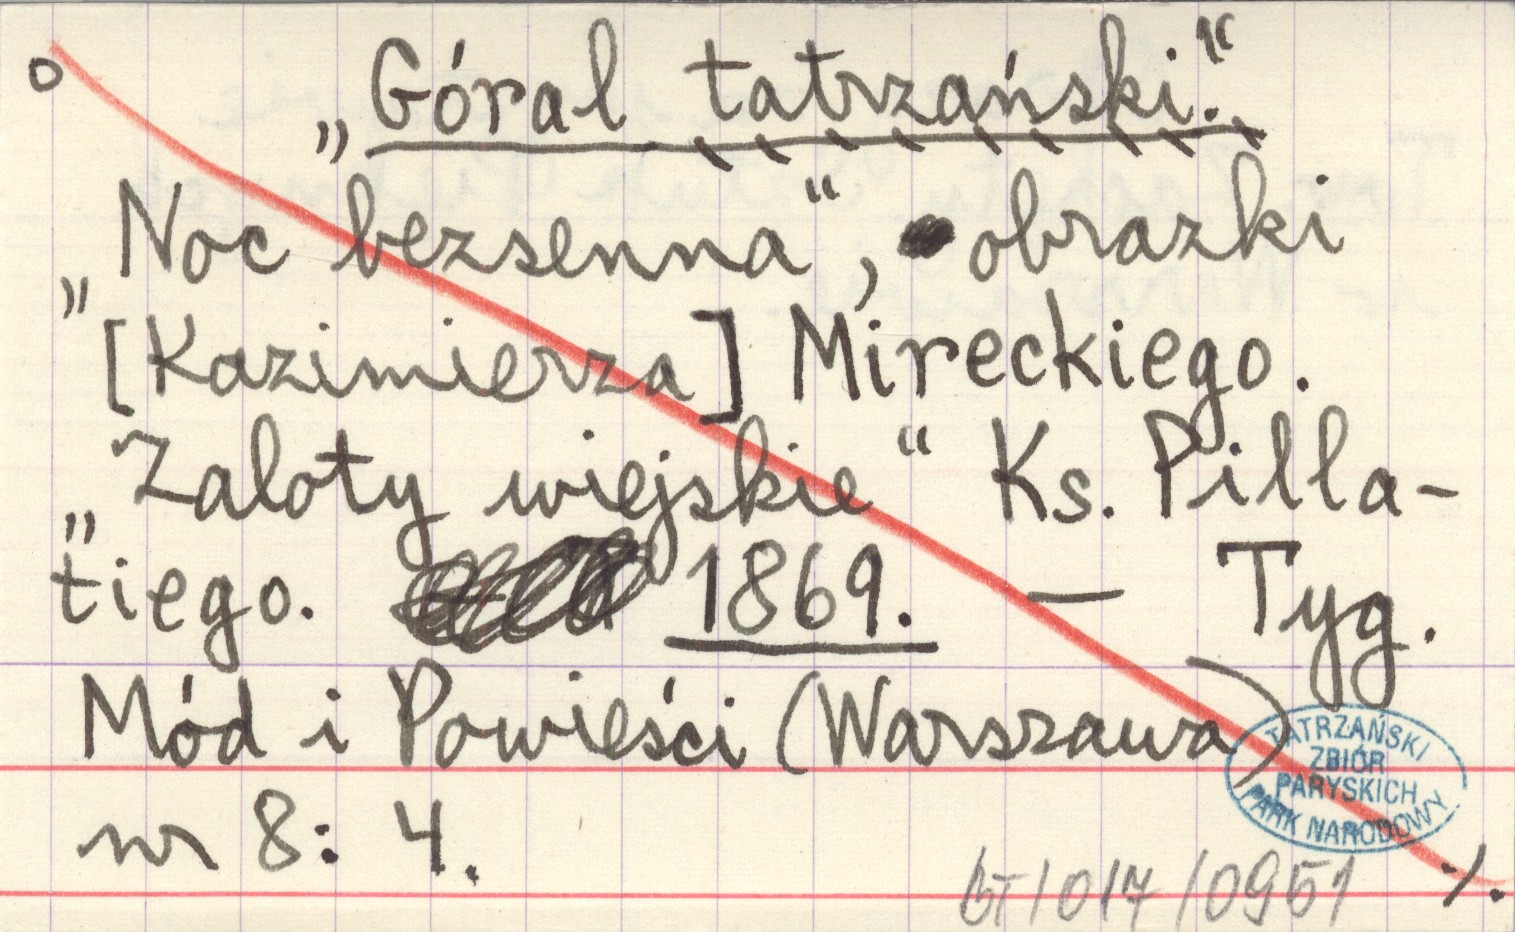 „Góral tatrzański.“
„Noc bezsenna“, obrazki
[Kazimierza] Mireckiego.
„Zaloty wiejskie“ Ks. Pilla-
tiego. 1869. — Tyg.
Mód i Powieści (Warszawa)
nr 8: 4.
TATRZAŃSKI
ZBIÓR
PARYSKICH
PARK NARODOWY
BT/017/0951
./.